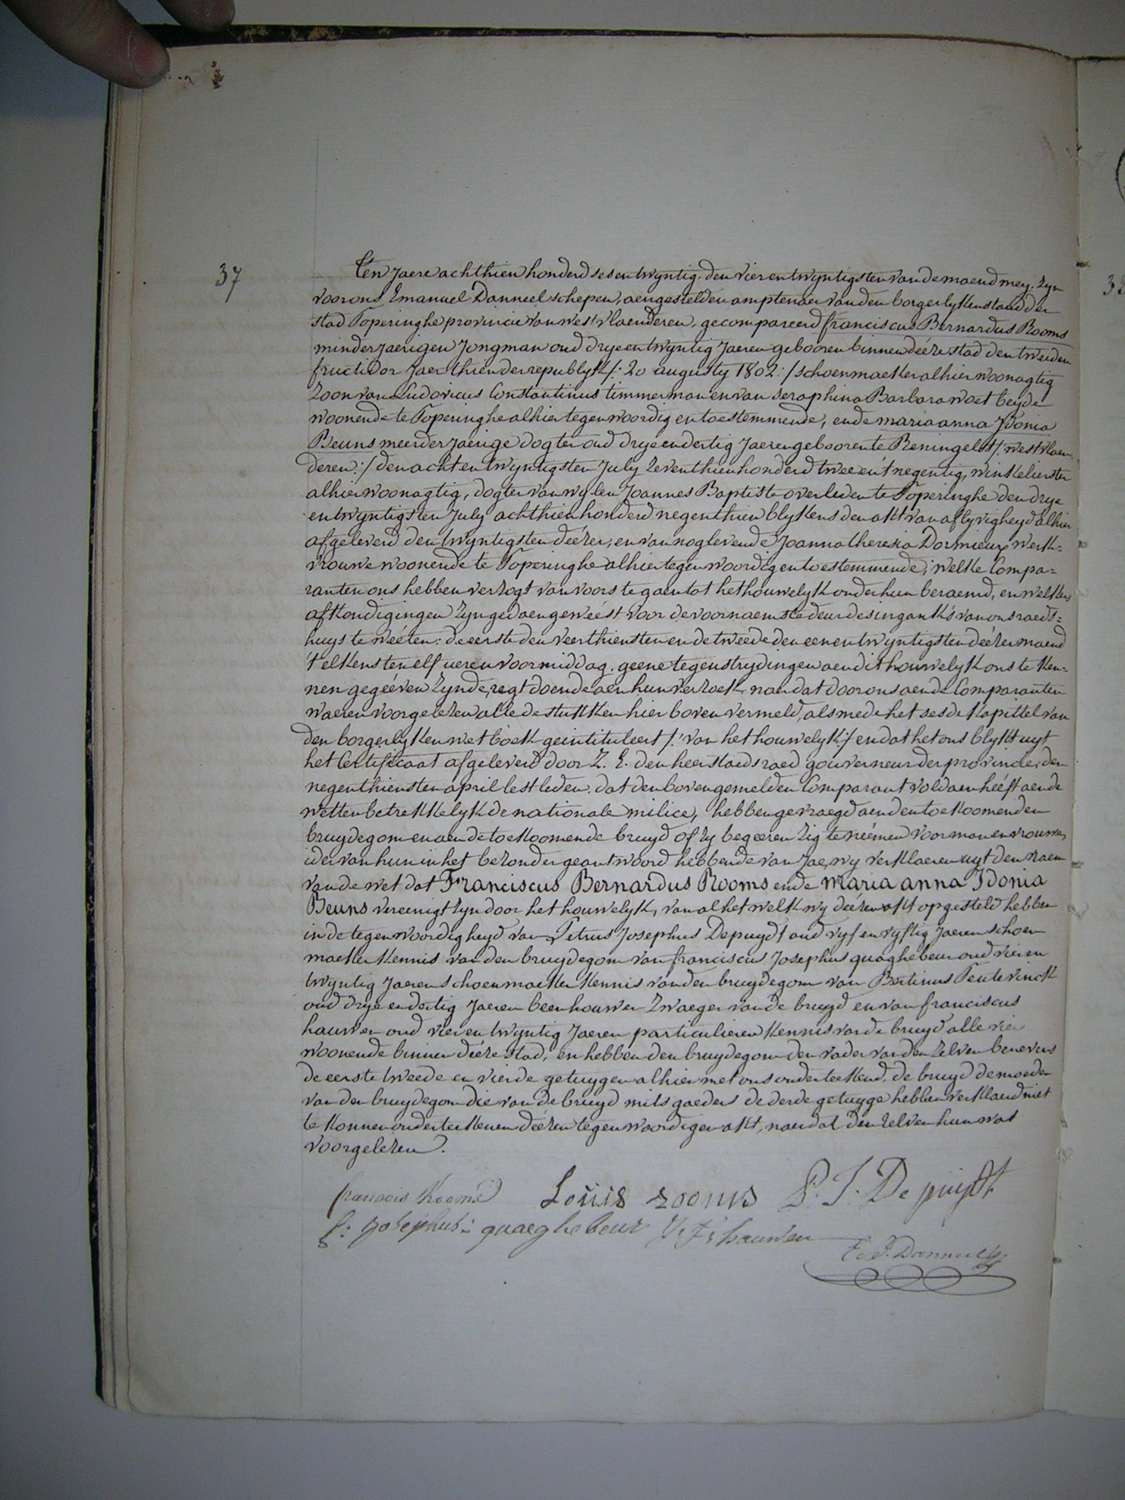 37
Ten Jaere achthien honderd ses en twyntig. den vier en twyntigsten van de maend mey. Zyn
voor ons Emanuel Danneel schepen, aengestelden amptenaer van den borgerlyken stand der
stad Poperinghe provincie van west vlaenderen, gecompareerd franciscus Bernardus Rooms
minderjaerigen Jongman oud drye en twyntig Jaeren gebooren binnen deéze stad den tweeden
fructidor Jaer thien der republyk /: 20 augusty 1802 :/ schoenmaeker alhier woonagtig
zoon van Ludovicus Constantinus timmerman en van seraphina Barbara woet beyde
woonende te Poperinghe alhier tegenwoordig en toestemmende, ende maria anna Idonia
Beuns meerderjaerige dogter oud drye en dertig Jaeren gebooren te Reningelst /: west vlaen
deren :/ den acht en twyntigsten July zeventhien honderd twee en t negentig, winkelierster
alhier woonagtig, dogter van wylen Joannes Baptiste overleden te Poperinghe den drye
en twyntigsten July achthien honderd negenthien blykens den akt van aflyvigheyd alhier
afgeleverd den twyntigsten deézer, en van nog levende Joanna theresia Dormieux werk-
vrouwe woonende te Poperinghe alhier tegenwoordig en toestemmende; welke Compa-
ranten ons hebben verzogt van voors te gaen tot het houwelyk onder hun beraemd, en welkers
afkondigingen zyn gedaen geweést voor de voornaemste deur des ingangks van ons raeds-
huys te weéten: de eerste den veerthiensten en de tweede den een en twyntigsten deézer maend
t'elkens ten elf ueren voormiddag. geene tegenstrydingen aen dit houwelyk ons te ken-
nen gegeéven zynde, regt doende aen hun verzoek, naer dat door ons aen de Comparanten
waeren voorgelezen alle de stukken hier boven vermeld, alsmede het sesde kapittel van
den borgerlyken wet boek geintituleert /: van het houwelyk :/ en dat het ons blykt uyt
het Certificaet afgeleverd door Z. E. den heer staedsraed gouverneur der provincie, den
negenthiensten april lest leden, dat den bovengemelden Comparant voldaen heéft aen de
wetten betrekkelyk de nationale milice, hebben gevraegd aen den toekoomenden
bruydegom en aen de toekoomende bruyd of zy begeeren zig te neémen voor man en vrouwe,
ider van hun in het bezonder geantwoord hebbende van Jae, wy verklaeren uyt den naem
van de wet dat Franciscus Bernardus Rooms ende maria anna Idonia
Beuns vereenigt zyn door het houwelyk, van al het welk wy deézen akt opgesteld hebben
in de tegenwoordigheyd van Petrus Josephus Depuydt oud vyf en vyftig Jaeren schoen
maeker kennis van den bruydegom van franciscus Josephus quaghebeur oud vier en
twyntig Jaeren schoenmaeker kennis van den bruydegom van Bertinus Peutevinck
oud drye en dertig Jaeren beenhouwer zwaeger van de bruyd en van franciscus
hauwen oud vier en twyntig Jaeren particulieren kennis van de bruyd alle vier
woonende binnen deéze stad, en hebben den bruydegom den vader van den zelven benevens
de eerste tweede en vierde getuygen alhier met ons onderteekend. de bruyd de moeder
van den bruydegom die van de bruyd mitsgaeders de derde getuyge hebben verklaerd niet
te konnen onderteekenen deézen tegenwoordigen akt, naer dat den zelven hun was
voorgelezen.
francois Rooms Louis rooms P. J. De puydt
f: Josephus: quaeghebeur F: hauwen
E. J. Danneel